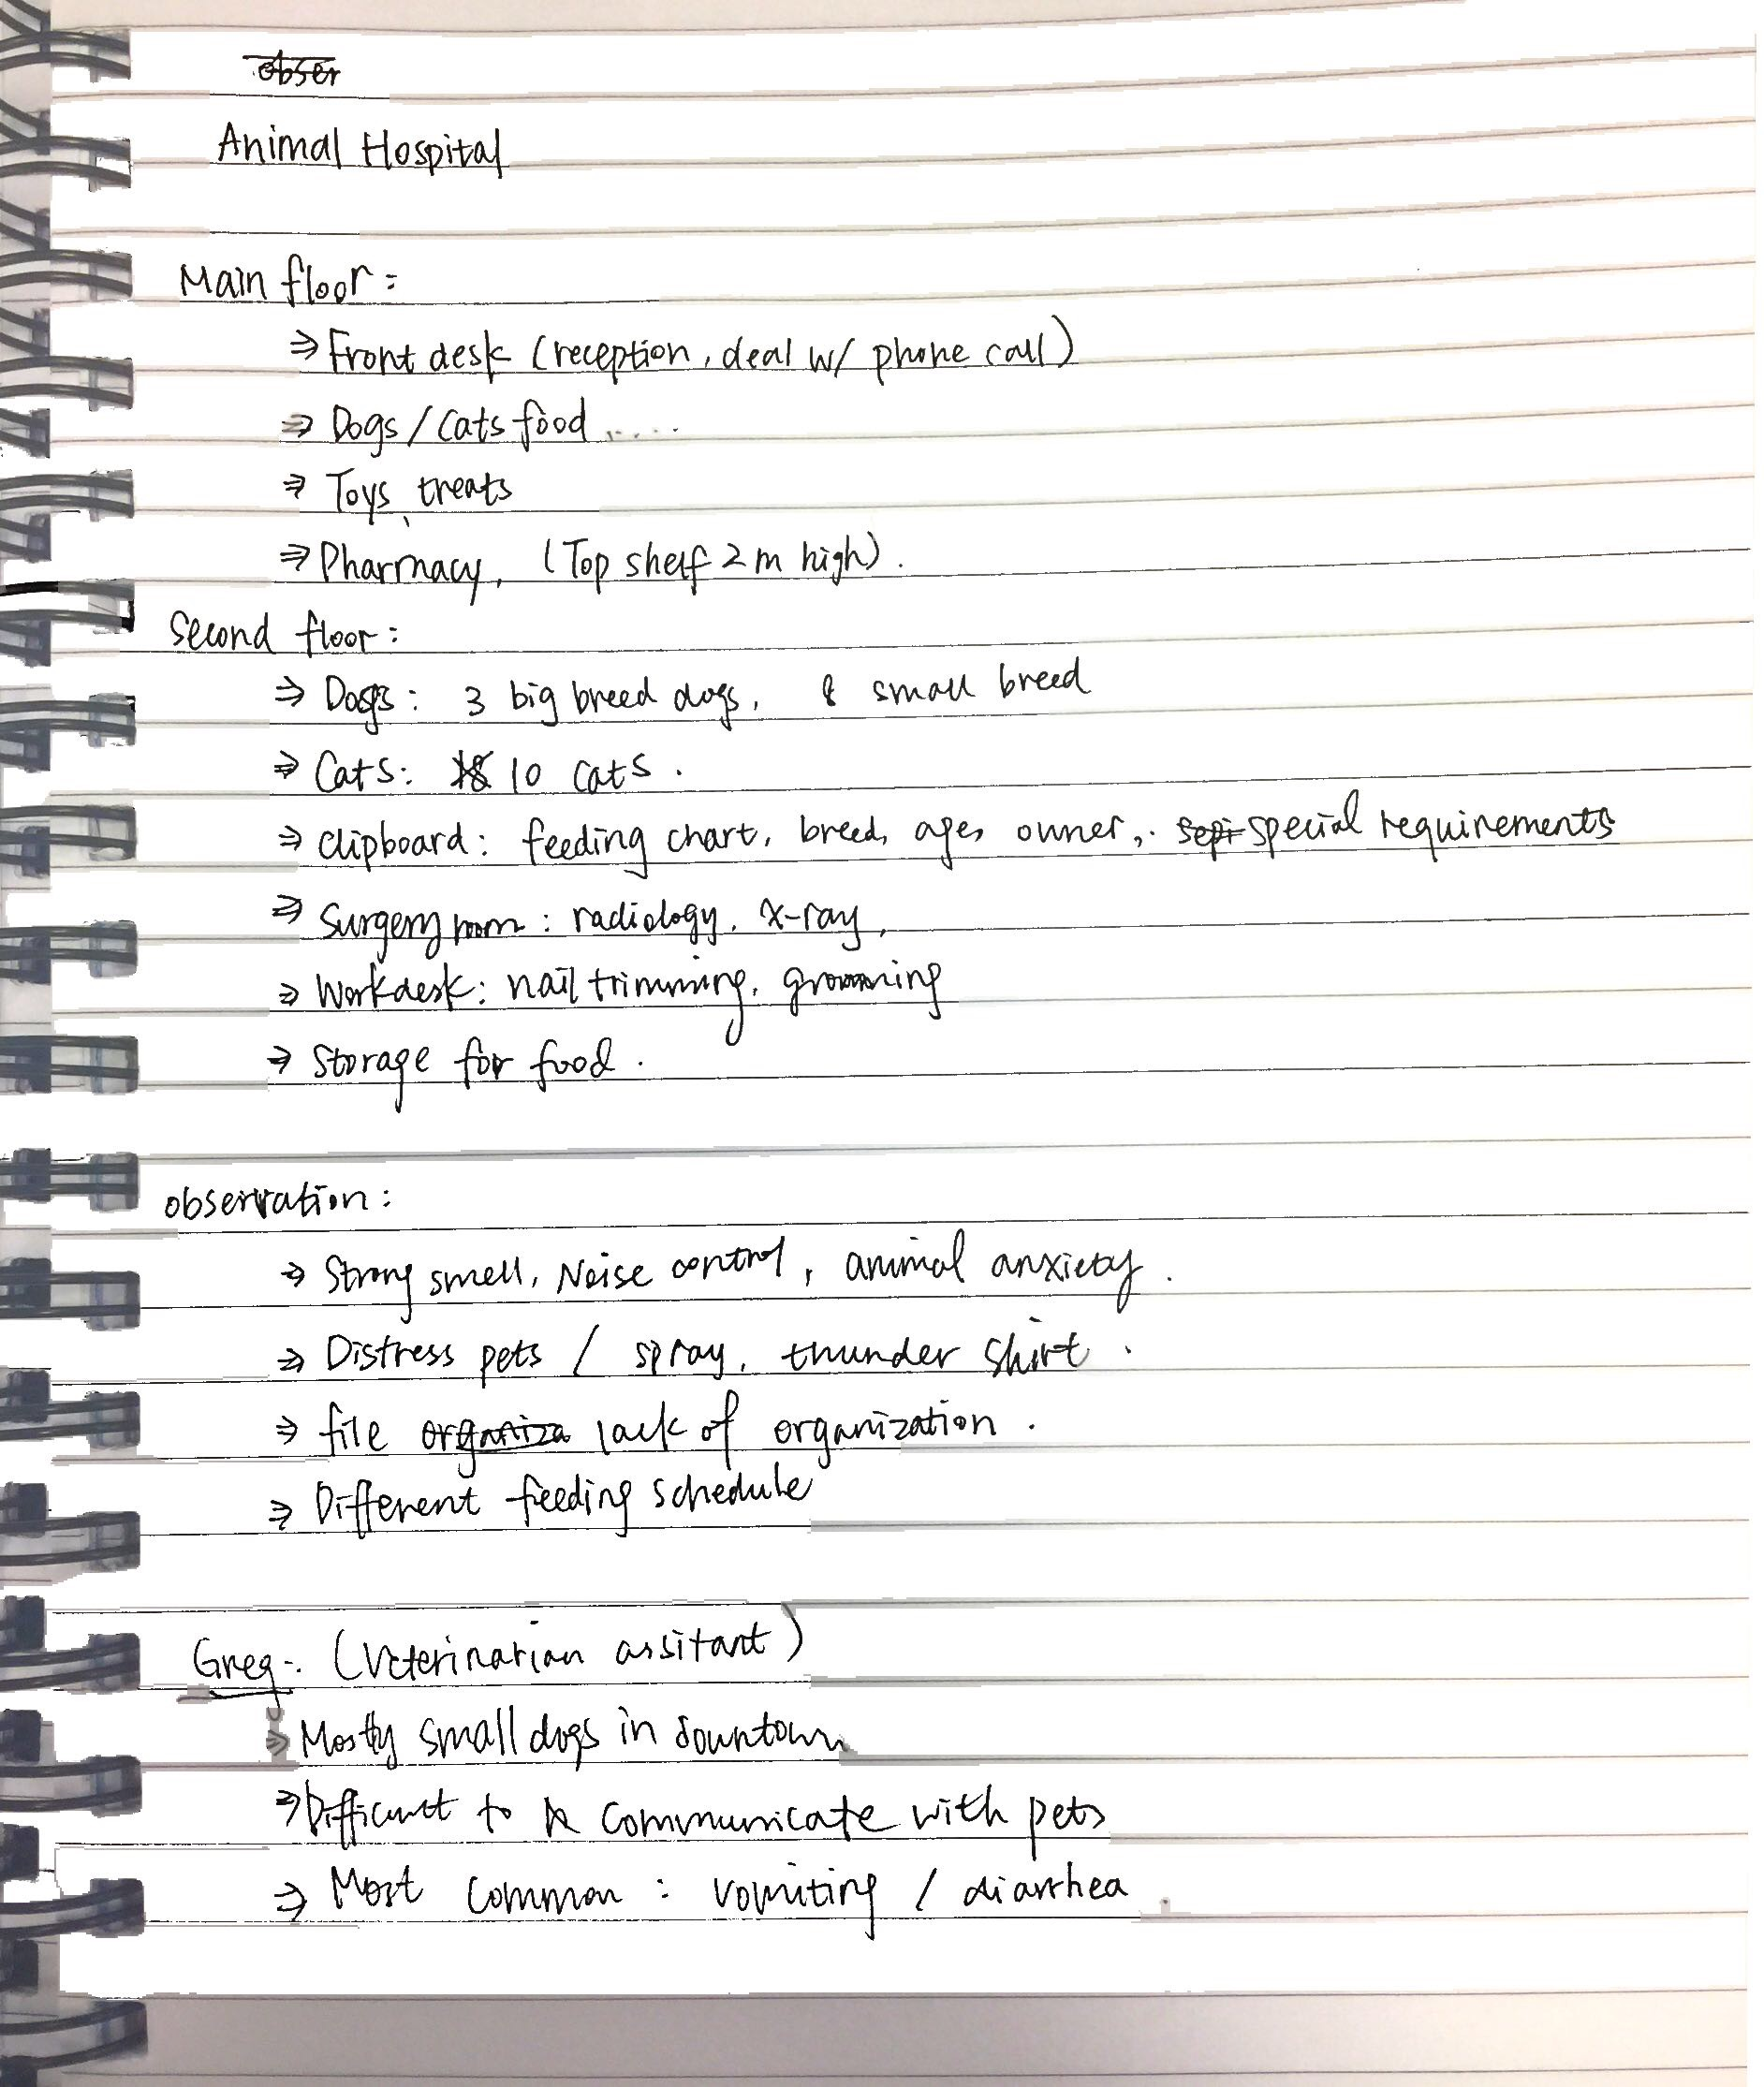 obser
Animal Hospital
Main floor:
⇒ Front desk (reception, deal w/ phone call)
⇒ Dogs/Cats food .....
⇒ Toys, treats
⇒ Pharmacy, (Top shelf 2m high).
Second floor:
⇒ Dogs: 3 big breed dogs, 8 small breed
⇒ Cats: 18 10 cats.
⇒ clipboard: feeding chart, breed, age, owner, sepi special requirements
⇒ Surgery room: radiology, x-ray,
⇒ Workdesk: nail trimming, grooming
⇒ Storage for food.
observation:
⇒ Strong smell, Noise control, animal anxiety.
⇒ Distress pets / spray, thunder shirt.
⇒ file organiza lack of organization.
⇒ Different feeding schedule
Greg: (Veterinarian assitant)
⇒ Mostly small dogs in downtown
⇒ Difficult to communicate with pets
⇒ Most common: vomiting / diarrhea.